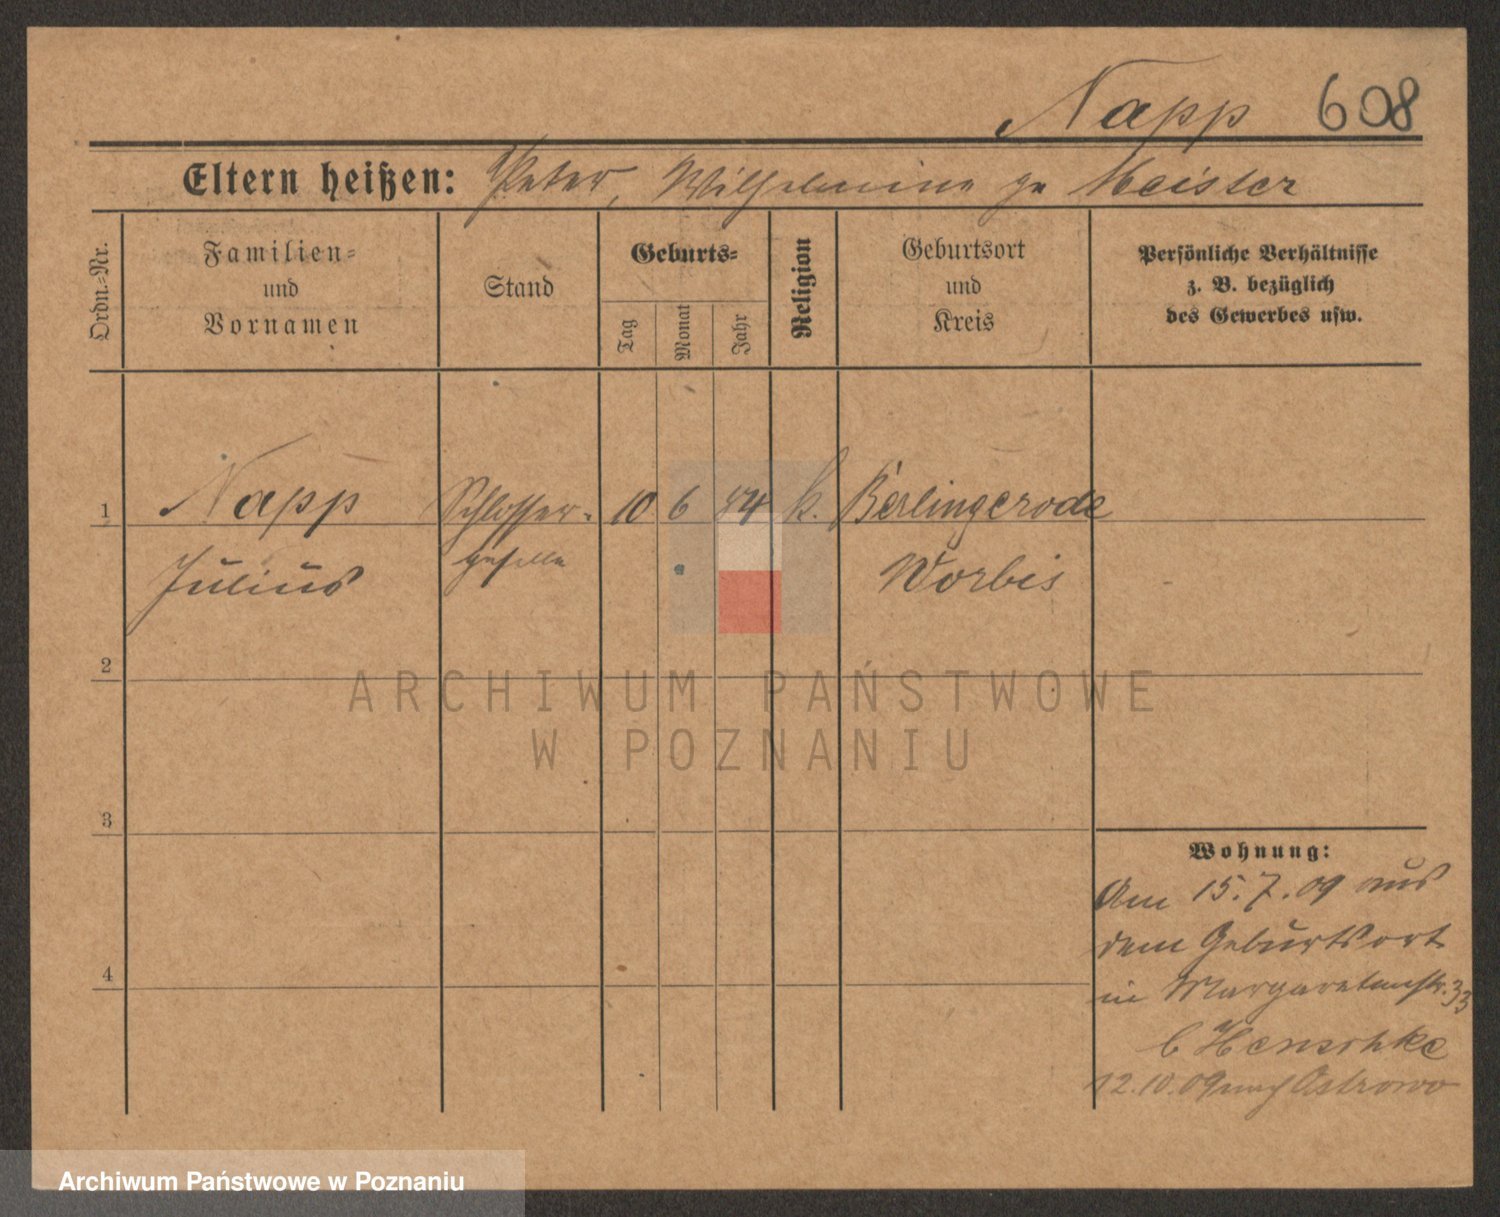 Napp 608
Eltern heißen: Peter, Wilhelmine ge Meister
Ordn.=Nr.
Familien=
und
Vornamen
Stand
Geburts=
Tag
Monat
Jahr
Religion
Geburtsort
und
Kreis
Persönliche Verhältnisse
z. B. bezüglich
des Gewerbes usw.
1 Napp Schlosser- 10 6 84 k. Berlingerode
Julius geselle Worbis
2
ARCHIWUM PAŃSTWOWE
W POZNANIU
3
Wohnung:
Am 15.7.09 aus
dem Geburtsort
4
in Margaretenstr. 33
b Henschke
12.10.09 nach Ostrowo
Archiwum Państwowe w Poznaniu